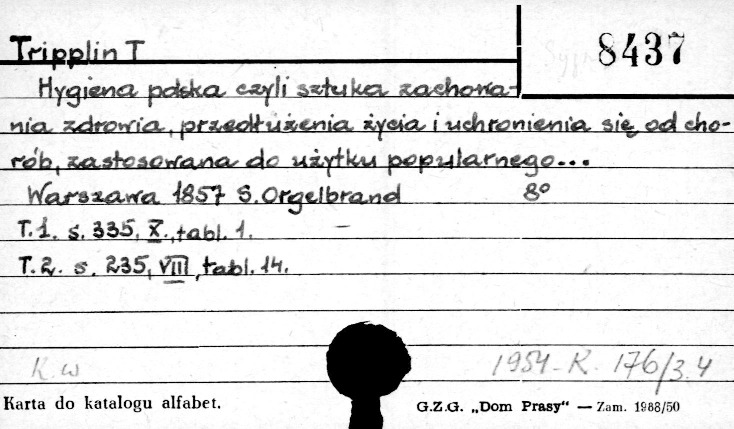 Tripplin T
8437
Hygiena polska czyli sztuka zachowa-
nia zdrowia, przedłużenia życia i uchronienia się od cho-
rób, zastosowana do użytku popularnego...
Warszawa 1857 S. Orgelbrand 8°
T.1. s. 335, X, tabl. 1.
T.2. s. 235, VIII, tabl. 14.
K. w
1954-K. 176/3.4
Karta do katalogu alfabet.
G.Z.G. „Dom Prasy" — Zam. 1988/50